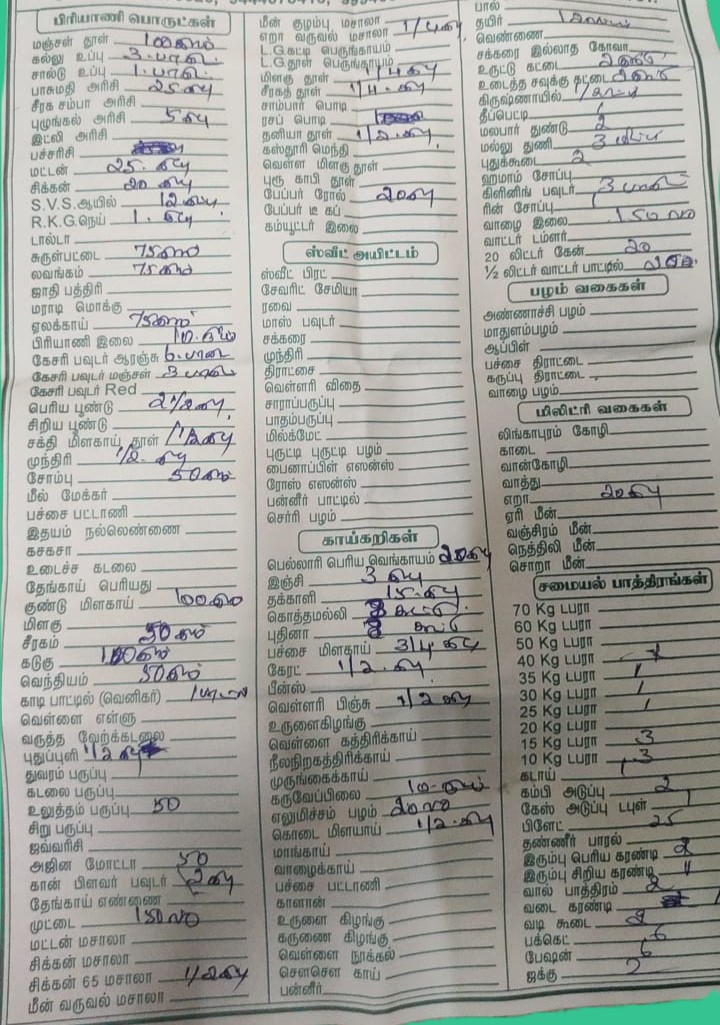 பிரியாணி பொருட்கள்
மஞ்சள் தூள் 100கிராம்
கல்லு உப்பு 3.பாகெ.
சால்டு உப்பு 1.பாகெ.
பாசுமதி அரிசி 25கிலோ
சீரக சம்பா அரிசி
புழுங்கல் அரிசி 5கிலோ
இட்லி அரிசி
பச்சரிசி
மட்டன் 25.கிலோ
சிக்கன் 20 கிலோ
S.V.S.ஆயில் 12கிலோ
R.K.G.நெய் 1.கிலோ
டால்டா
சுருள்பட்டை 75கிராம்
லவங்கம் 75கிராம்
ஜாதி பத்திரி
மராடி மொக்கு
ஏலக்காய் 75கிராம்
பிரியாணி இலை 10.கிராம்
கேசரி பவுடர் ஆரஞ்சு 6.பாகெ
கேசரி பவுடர் மஞ்சள் 3 பாகெ
கேசரி பவுடர் Red
பெரிய பூண்டு 2 1/2கிலோ
சிறிய பூண்டு
சக்தி மிளகாய் தூள் 1 1/2கிலோ
முந்திரி 1/2.கிலோ
சோம்பு 50கிராம்
மீல் மேக்கர்
பச்சை பட்டாணி
இதயம் நல்லெண்ணை
கசகசா
உடைச்ச கடலை
தேங்காய் பெரியது
குண்டு மிளகாய் 100கிராம்
மிளகு
சீரகம் 50கிராம்
கடுகு 100கிராம்
வெந்தியம் 50கிராம்
காடி பாட்டில் (வெனிகர்)
வெள்ளை எள்ளு
வருத்த வேர்க்கடலை
புதுப்புளி 1/2 கிலோ
துவரம் பருப்பு
கடலை பருப்பு
உலுத்தம் பருப்பு 50
சிறு பருப்பு
ஜவ்வரிசி
அஜின மோட்டா 50
கான் பிளவர் பவுடர் 2கிலோ
தேங்காய் எண்ணை
முட்டை 150
மட்டன் மசாலா
சிக்கன் மசாலா
சிக்கன் 65 மசாலா 1/2கிலோ
மீன் வருவல் மசாலா
மீன் குழம்பு மசாலா
எறா வருவல் மசாலா 1/4கிலோ
L.G.கட்டி பெருங்காயம்
L.G.தூள் பெருங்காயம்
மிளகு தூள் 1/4கிலோ
சீரகத் தூள் 1/4.கிலோ
சாம்பார் பொடி
ரசப் பொடி
தனியா தூள் 1/2.கிலோ
கஸ்தூரி மெந்தி
வெள்ள மிளகு தூள்
புரூ காபி தூள்
பேப்பர் ரோல் 20
பேப்பர் டீ கப்
கம்யூட்டர் இலை
ஸ்வீட் அயிட்டம்
ஸ்வீட் பிரட்
சேவரிட் சேமியா
ரவை
மாஸ் பவுடர்
சக்கரை
முந்திரி
திராட்சை
வெள்ளரி விதை
சாராப்பருப்பு
பாதம்பருப்பு
மில்க்மேட்
புருட்டி புருட்டி பழம்
பைனாப்பிள் எஸன்ஸ்
ரோஸ் எஸன்ஸ்
பன்னீர் பாட்டில்
செர்ரி பழம்
காய்கறிகள்
பெல்லாரி பெரிய வெங்காயம் 20கிலோ
இஞ்சி 3 கிலோ
தக்காளி 15.கிலோ
கொத்தமல்லி 8 கட்டு
புதினா 8 கட்டு
பச்சை மிளகாய் 3/4 கிலோ
கேரட் 1/2.கிலோ
பீன்ஸ்
வெள்ளரி பிஞ்சு 1/2 கிலோ
உருளைகிழங்கு
வெள்ளை கத்திரிக்காய்
நீலநிறகத்திரிக்காய்
முருங்கைக்காய்
கருவேப்பிலை 10
எலுமிச்சம் பழம் 20
கொடை மிளயாய் 1/2.கிலோ
மாங்காய்
வாழைக்காய்
பச்சை பட்டாணி
காளான்
உருளை கிழங்கு
கருணை கிழங்கு
வெள்ளை நூக்கல்
சௌசௌ காய்
பன்னீர்
பால்
தயிர்
வெண்ணை
சக்கரை இல்லாத கோவா
உருட்டு கட்டை
உடைத்த சவுக்கு கட்டை
கிருஷ்ணாயில்
தீப்பெட்டி 1
மலபார் துண்டு 2
மல்லு துணி 3
புதுக்கூடை 2
ஹமாம் சோப்பு
கிளினிங் பவுடர் 3
ரின் சோப்பு 1
வாழை இலை 150
வாட்டர் டம்ளர்
20 லிட்டர் கேன் 20
½ லிட்டர் வாட்டர் பாட்டில்
பழம் வகைகள்
அண்ணாச்சி பழம்
மாதுளம்பழம்
ஆப்பிள்
பச்சை திராட்டை
கருப்பு திராட்டை
வாழை பழம்
மிலிட்ரி வகைகள்
லிங்காபுரம் கோழி
காடை
வான்கோழி
வாத்து
எறா 20கிலோ
ஏரி மீன்
வஞ்சிரம் மீன்
நெத்திலி மீன்
சொறா மீன்
சமையல் பாத்திரங்கள்
70 Kg டபரா
60 Kg டபரா
50 Kg டபரா
40 Kg டபரா
35 Kg டபரா 1
30 Kg டபரா 1
25 Kg டபரா 1
20 Kg டபரா
15 Kg டபரா 3
10 Kg டபரா 3
கடாய் 1
கம்பி அடுப்பு 2
கேஸ் அடுப்பு டபுள் 1
பிளேட் 25
தண்ணீர் பாரல்
இரும்பு பெரிய கரண்டி 2
இரும்பு சிறிய கரண்டி
வால் பாத்திரம் 2
வடை கரண்டி
வடி கூடை 2
பக்கெட் 6
பேஷன் 6
ஜக்கு 2